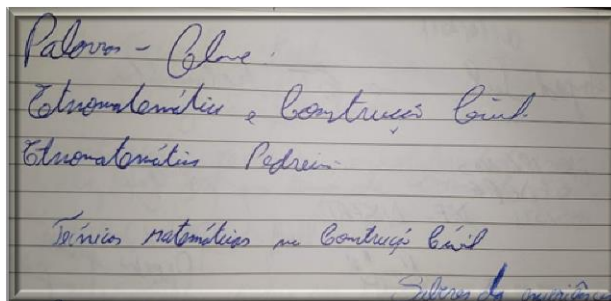 Palavras - Clave.
Etnomatemática e Construção Civil.
Etnomatemática Pedreiro
Técnicas matemáticas na Construção Civil
Saberes da